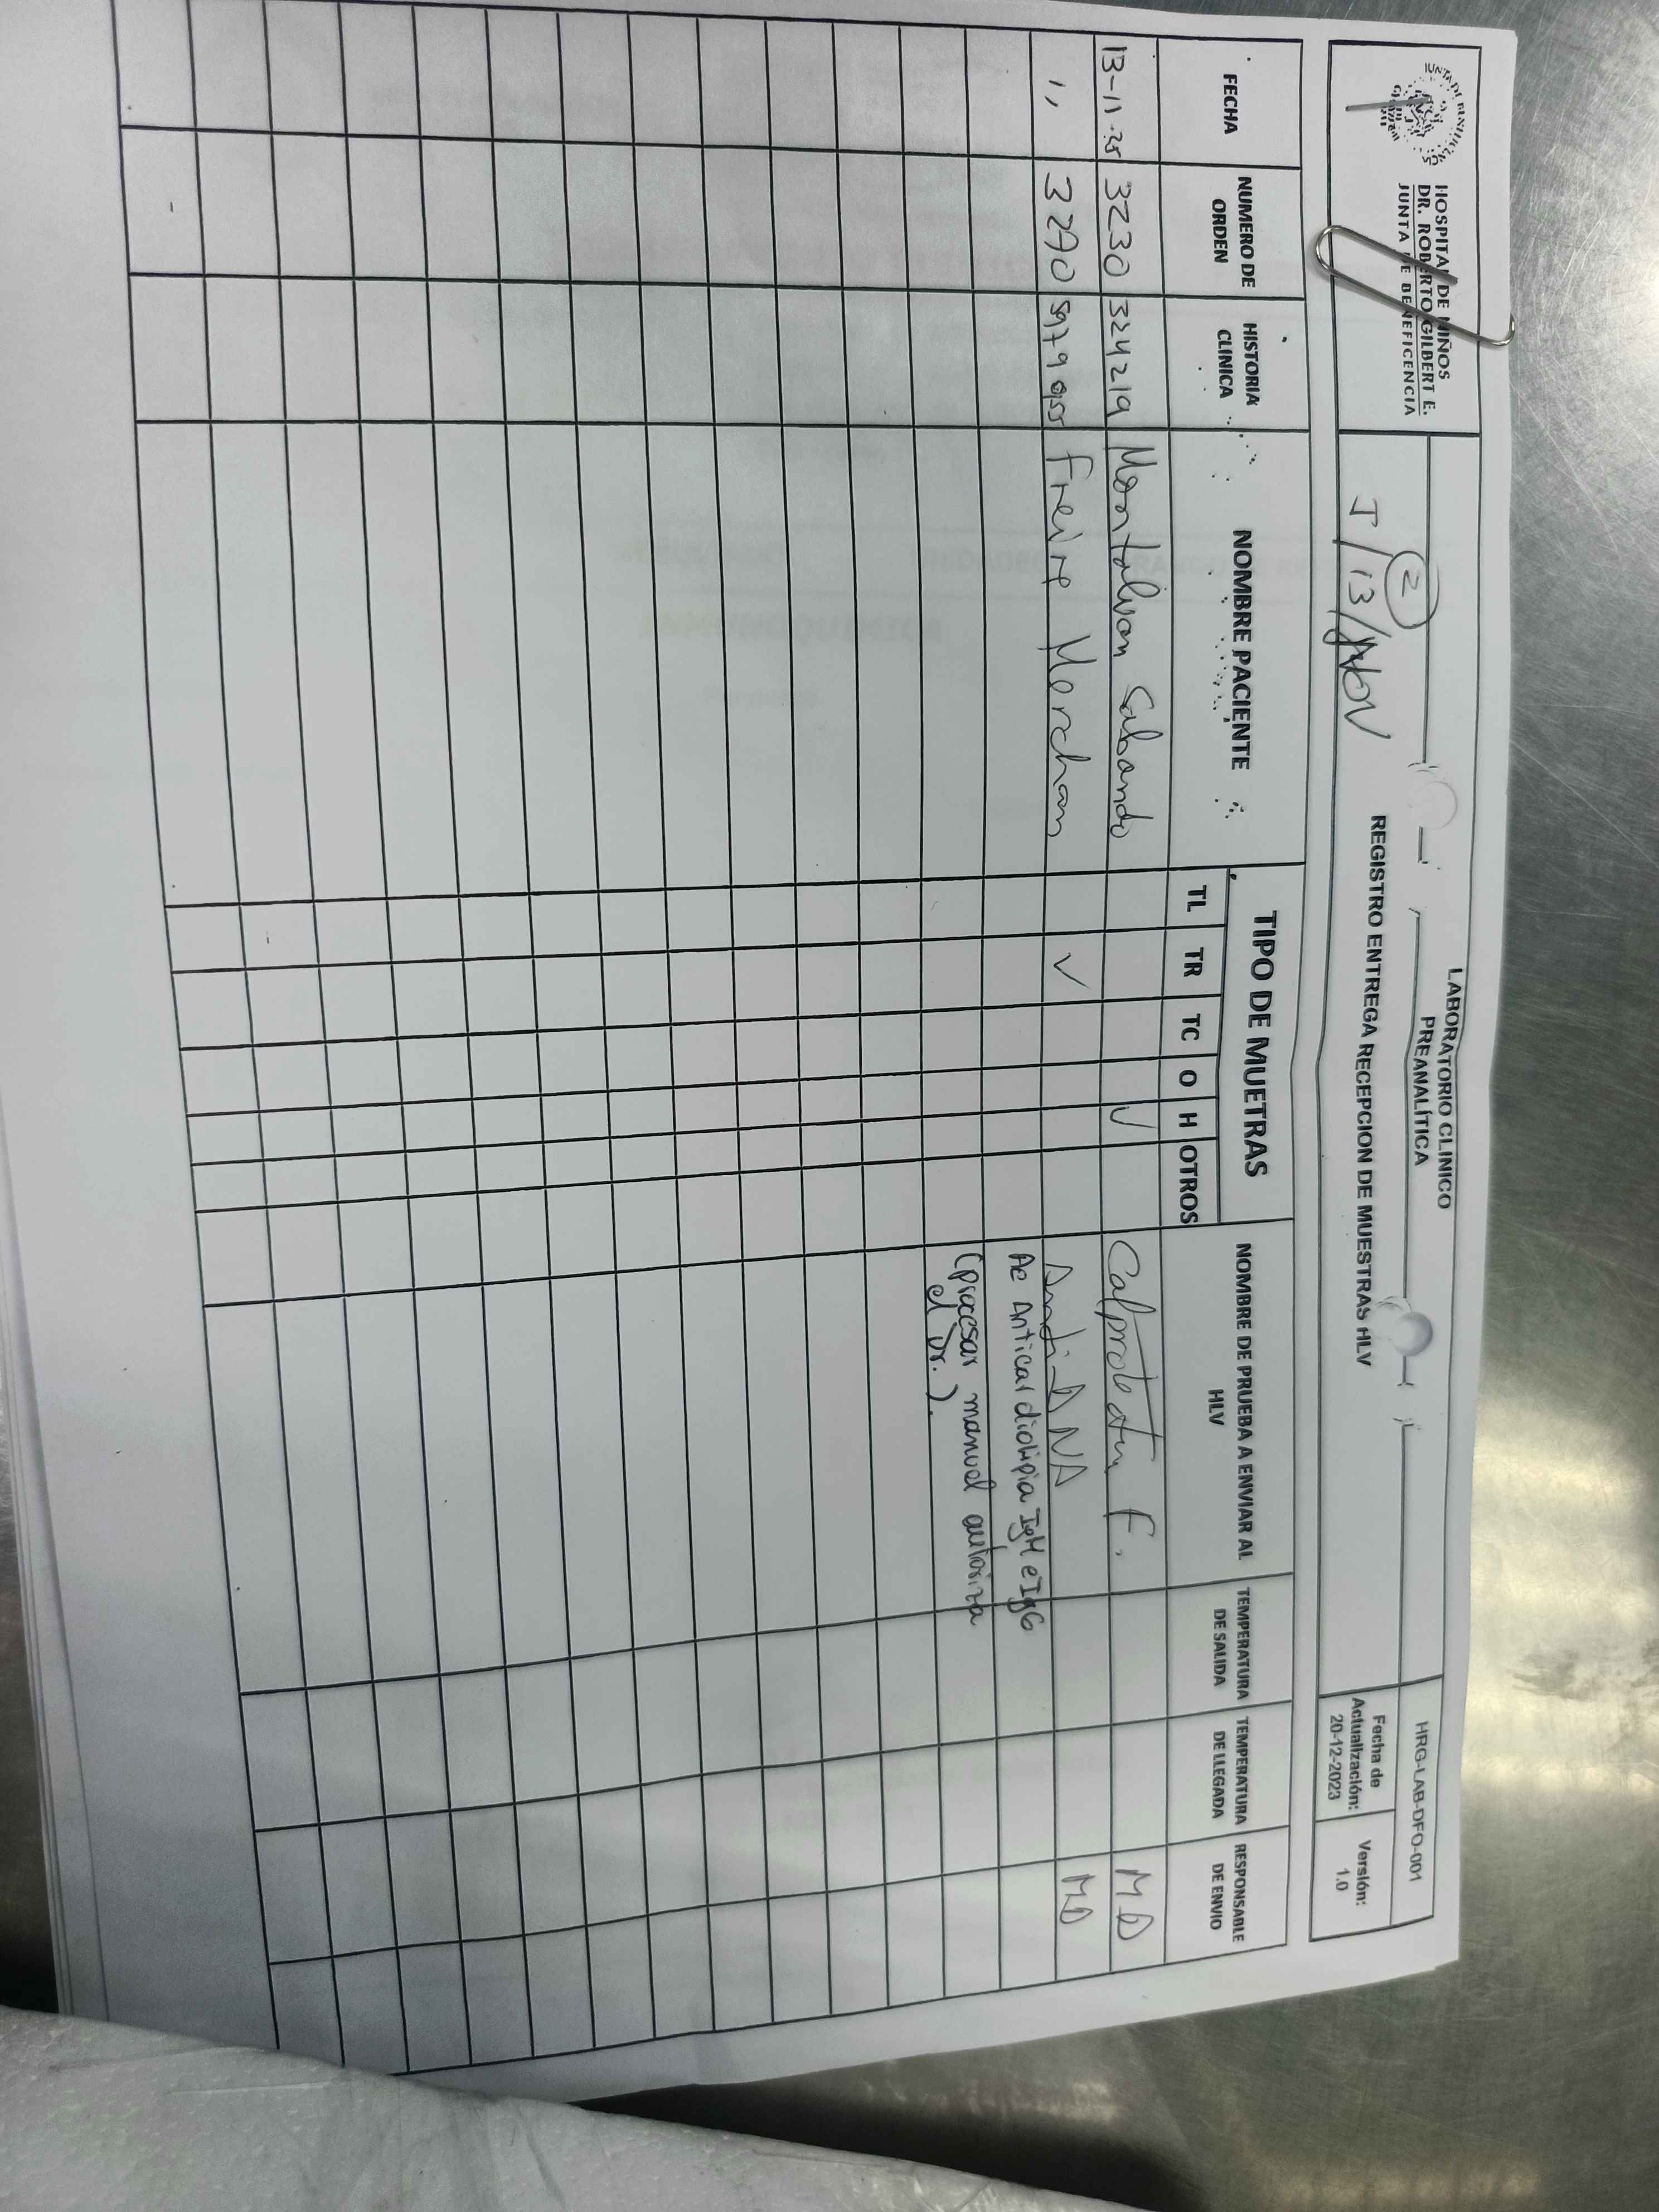 HOSPITAL DE NIÑOS
DR. ROBERTO GILBERT E.
JUNTA DE BENEFICENCIA
LABORATORIO CLINICO
PREANALÍTICA
HRG-LAB-DFO-001
2
J/13/NOV
REGISTRO ENTREGA RECEPCION DE MUESTRAS HLV
Fecha de
Actualización:
20-12-2023
Versión:
1.0
FECHA
NUMERO DE
ORDEN
HISTORIA
CLINICA
NOMBRE PACIENTE
TIPO DE MUETRAS
TL TR TC O H OTROS
NOMBRE DE PRUEBA A ENVIAR AL
HLV
TEMPERATURA
DE SALIDA
TEMPERATURA
DE LLEGADA
RESPONSABLE
DE ENVIO
13-11-25 3230 324219 Montalvan Sabando ✓ Calprotectin F. MD
" 3270 Freire Merchan ✓ Anti DNA MD
Ac Anticardiolipia IgM e IgG
(procesar manual autoriza
el Dr.).